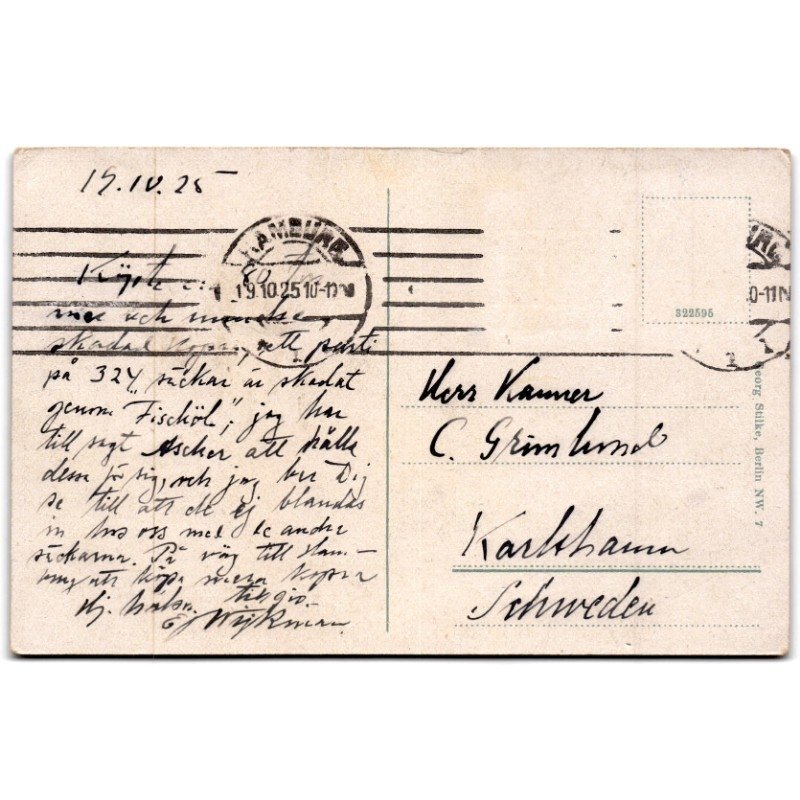 19.10.25
HAMBURG
19.10.25 10-11 N
Köpt 80
och
skadad kopra, ett parti
på 324 säckar är skadat
genom "Fischöl"; jag har
till sagt Ascher att hålla
dessa för sig, och jag ber Dig
se till att de ej blandas
in hos oss med de andra
säckarna. På väg till Ham-
burg att köpa mera kopra
Hj.
Wijkman
0-11 N
322595
Herr Kamrer
C. Grimlund
Karlshamn
Schweden
Georg Stilke, Berlin NW. 7